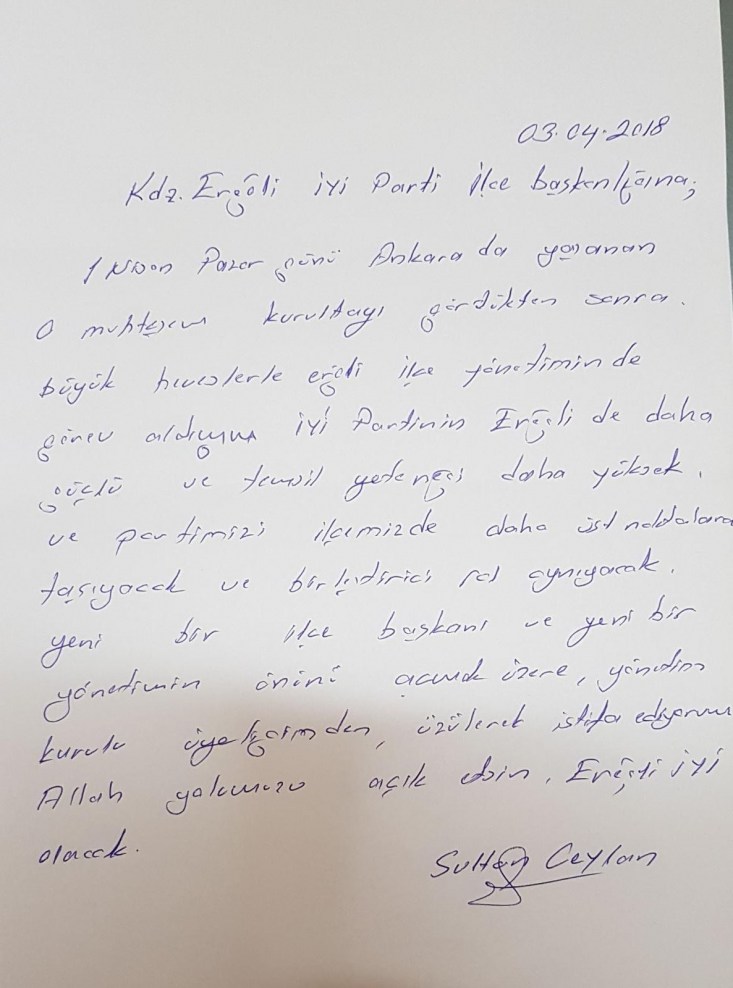 03.04.2018
Kdz. Ereğli iyi Parti ilçe başkanlığına;
1 Nisan Pazar günü Ankara da yaşanan
O muhteşem kurultayı gördükten sonra.
büyük heveslerle ereğli ilçe yönetiminde
görev aldığım iyi Partinin Ereğli de daha
güçlü ve temsil yeteneği daha yüksek,
ve partimizi ilçemizde daha üst noktalara
taşıyacak ve birleştirici rol oynıyacak.
yeni bir ilçe başkanı ve yeni bir
yönetimin önünü açmak üzere, yönetim
kurulu üyeliğimden, üzülerek istifa ediyorum
Allah yolumuzu açık etsin. Ereğli iyi
olacak.
Sultan Ceylan